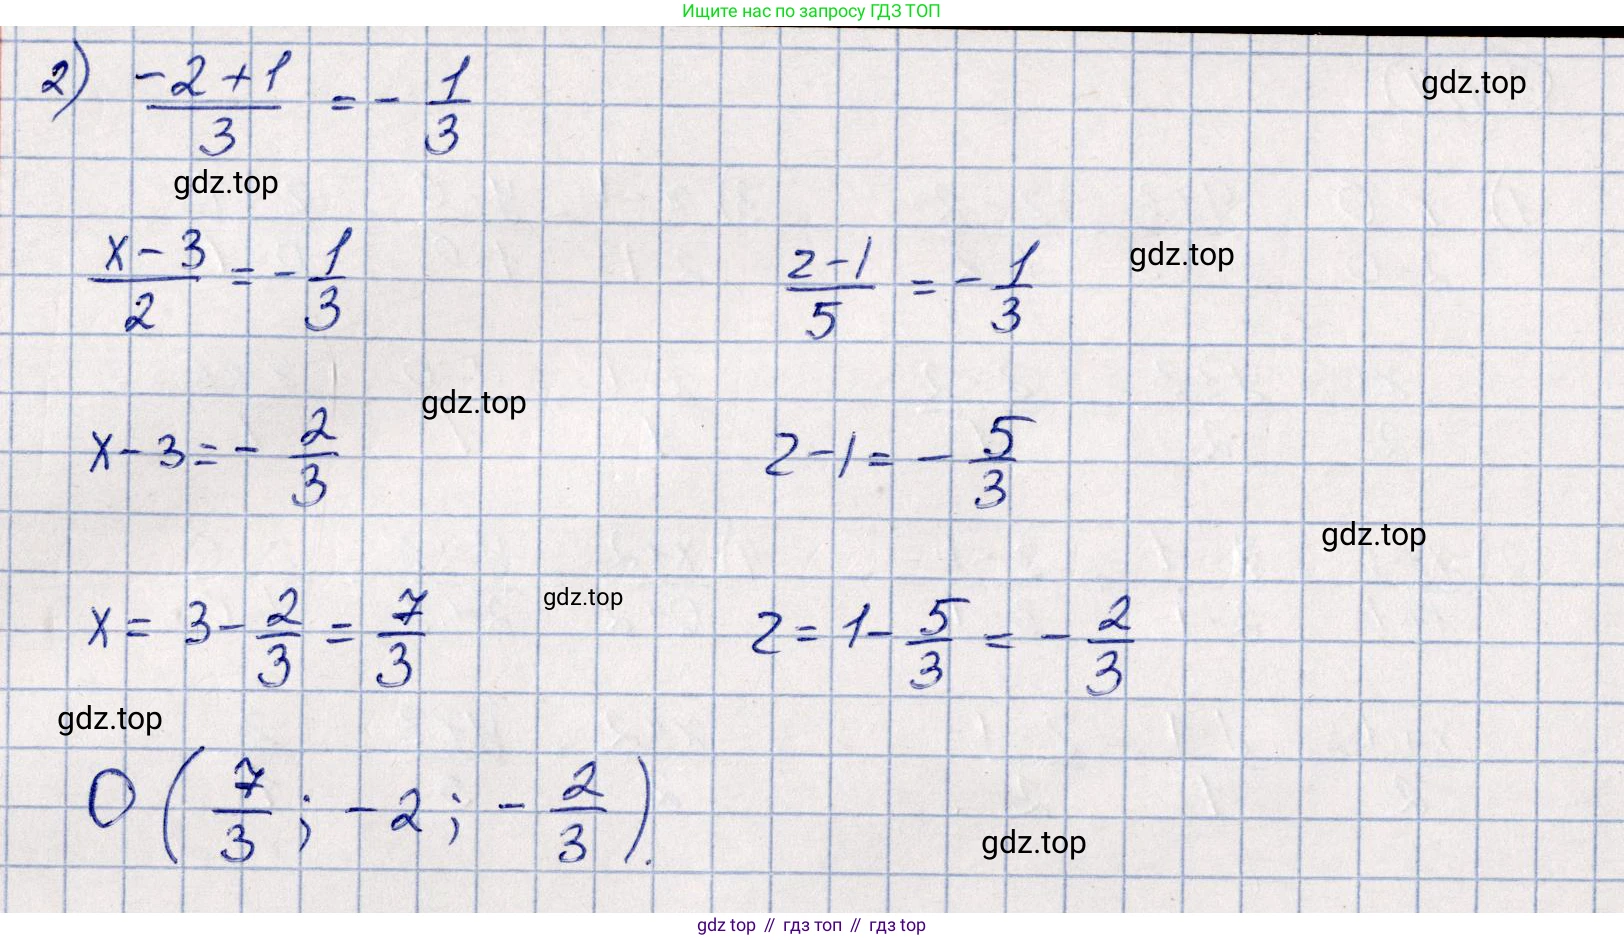 Ищите нас по запросу ГДЗ ТОП
2) (-2+1)/3 = -1/3
gdz.top
gdz.top
(x-3)/2 = -1/3
(z-1)/5 = -1/3
gdz.top
gdz.top
x-3 = -2/3
z-1 = -5/3
gdz.top
x = 3-2/3 = 7/3
gdz.top
z = 1-5/3 = -2/3
gdz.top
O (7/3; -2; -2/3).
gdz.top
gdz top // гдз топ // gdz top